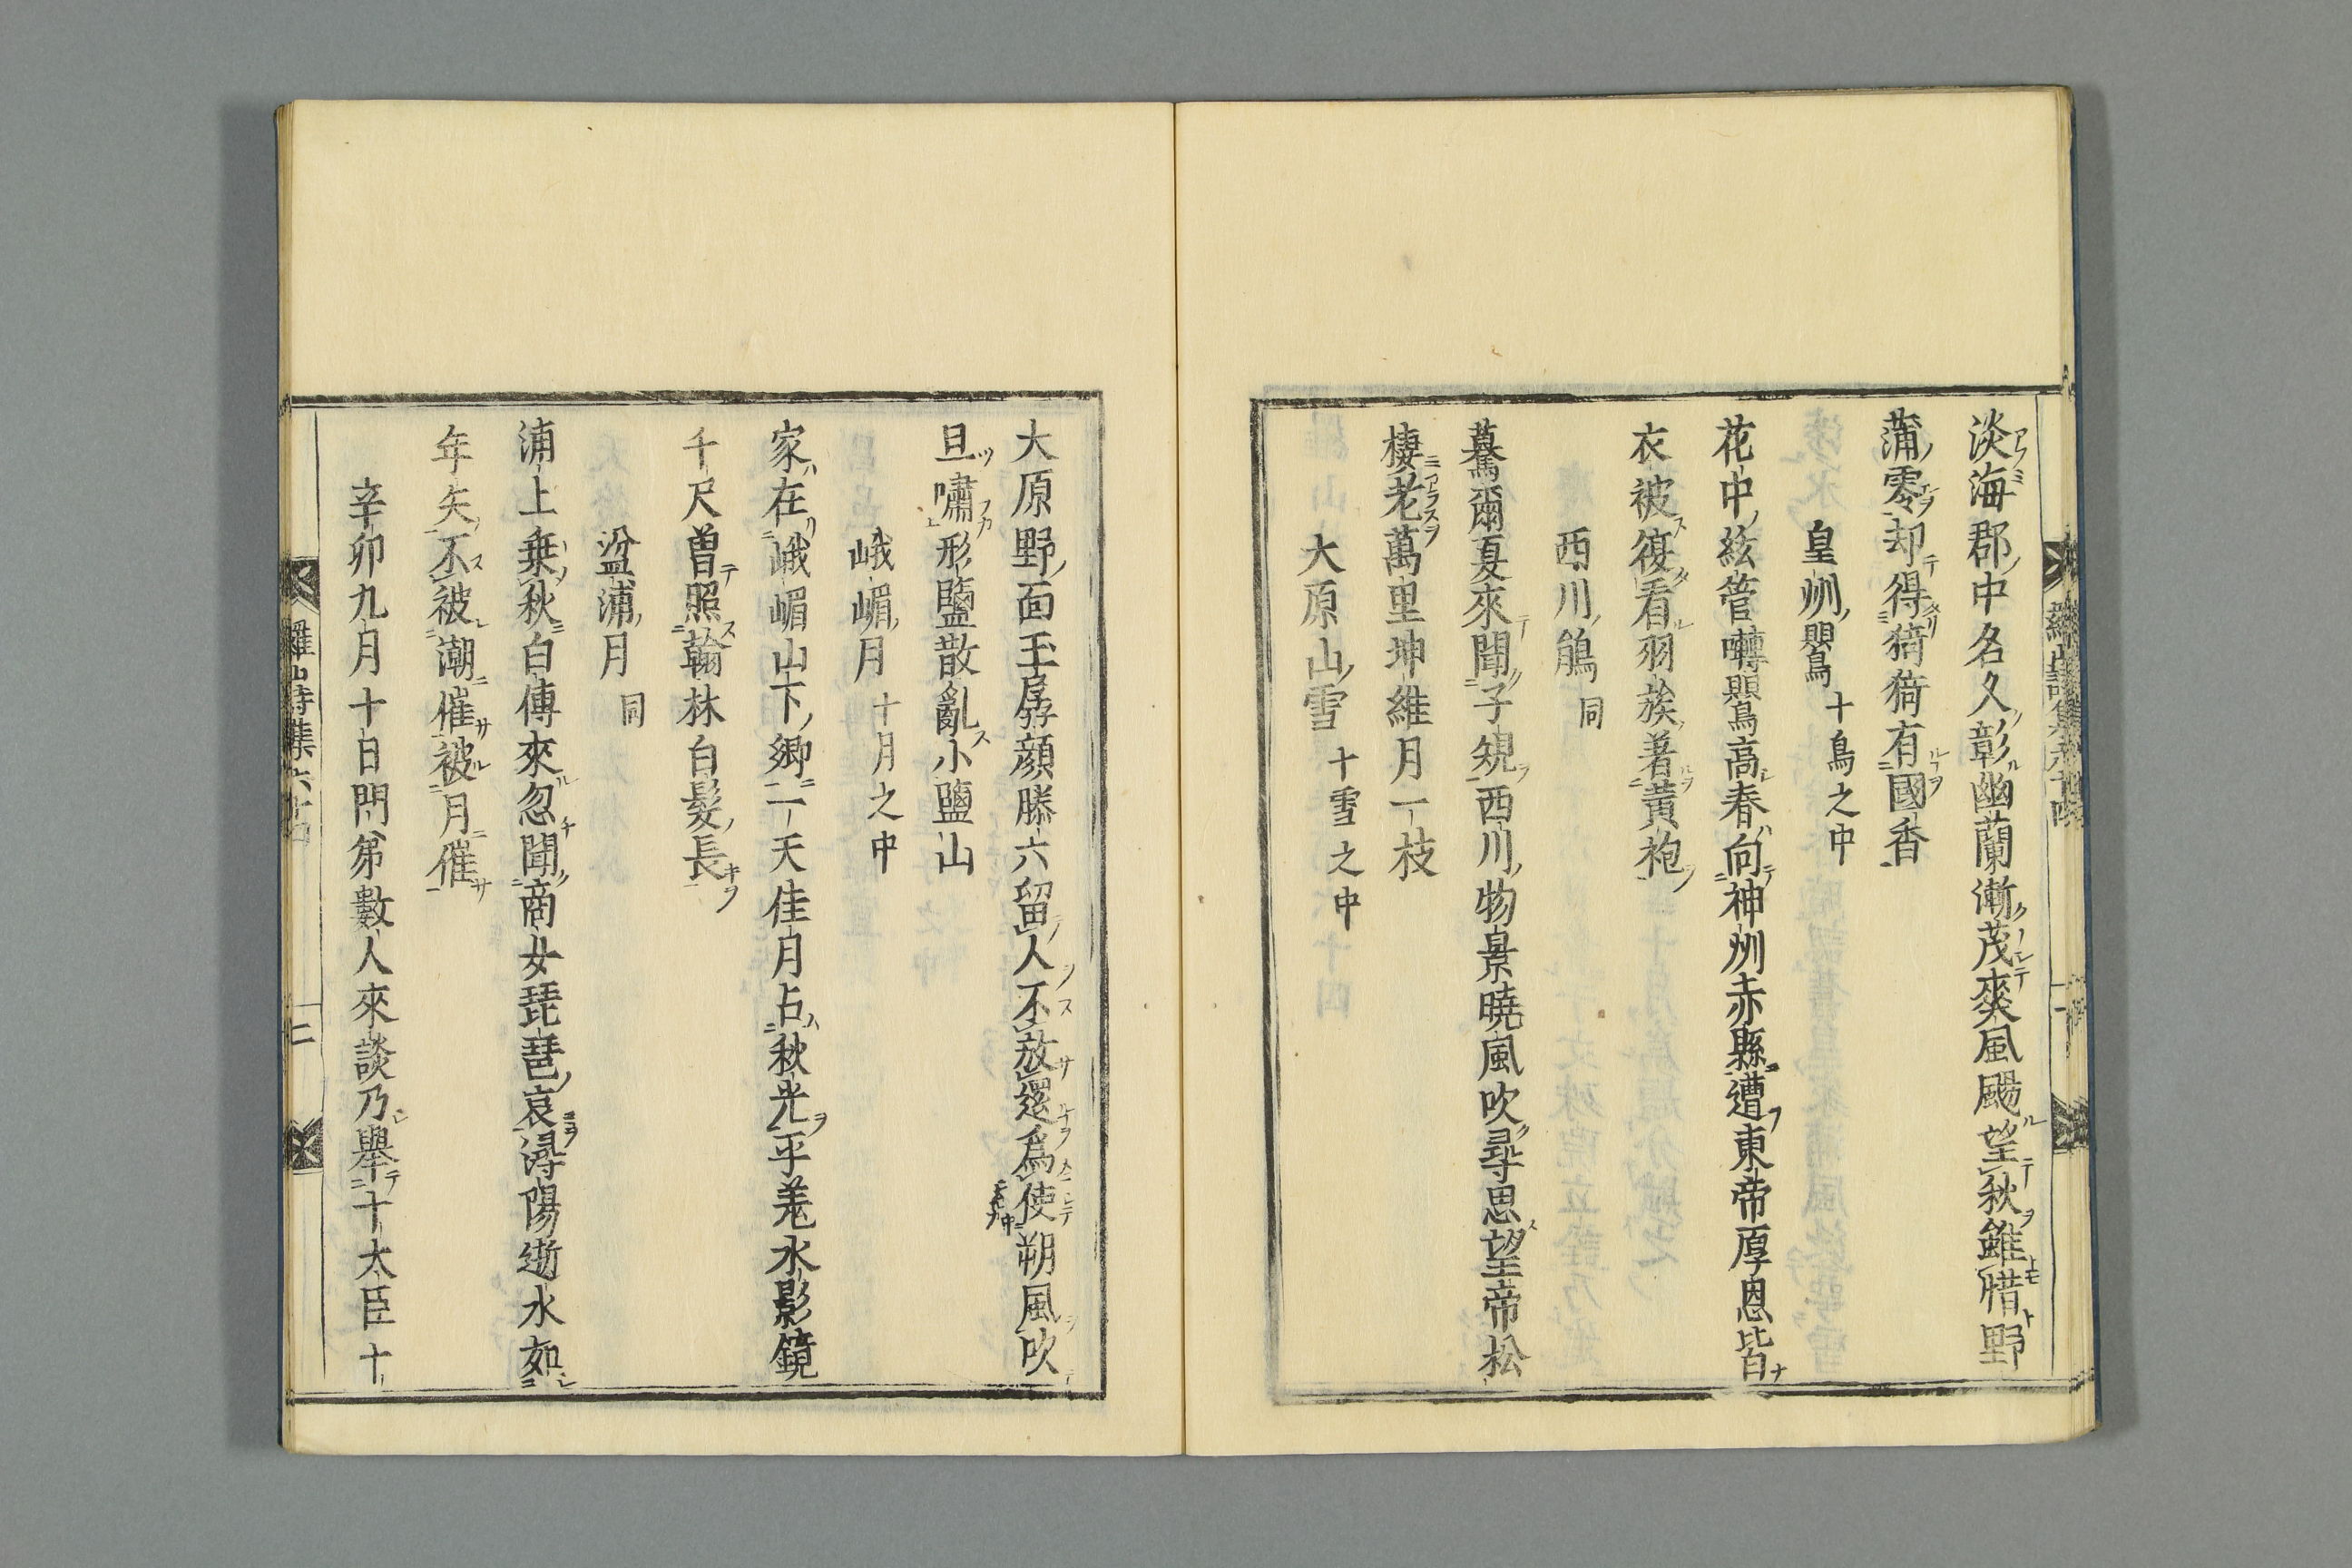 淡海郡中名久彰幽蘭漸茂爽風颺望秋雖惜野
蒲零却得猗猗有國香
皇州鸎 十鳥之中
花中絃管囀鸎高春向神州赤縣遭東帝厚恩皆
衣被復看羽族著黃袍
西川鵑 同
驀爾夏來聞子規西川物景曉風吹尋思望帝松
棲老萬里坤維月一枝
大原山雪 十雪之中
大原野面玉孱顏滕六留人不放還爲使朔風吹
旦嘯形鹽散亂小鹽山
峨嵋月 十月之中
家在峨嵋山下鄉一天佳月占秋光平羌水影鏡
千尺曾照翰林白髮長
湓浦月 同
浦上乗秋白傳來忽聞商女琵琶哀潯陽逝水如
年矢不被潮催被月催
辛卯九月十日門弟數人來談乃舉十大臣十
羅山詩集六十四
二